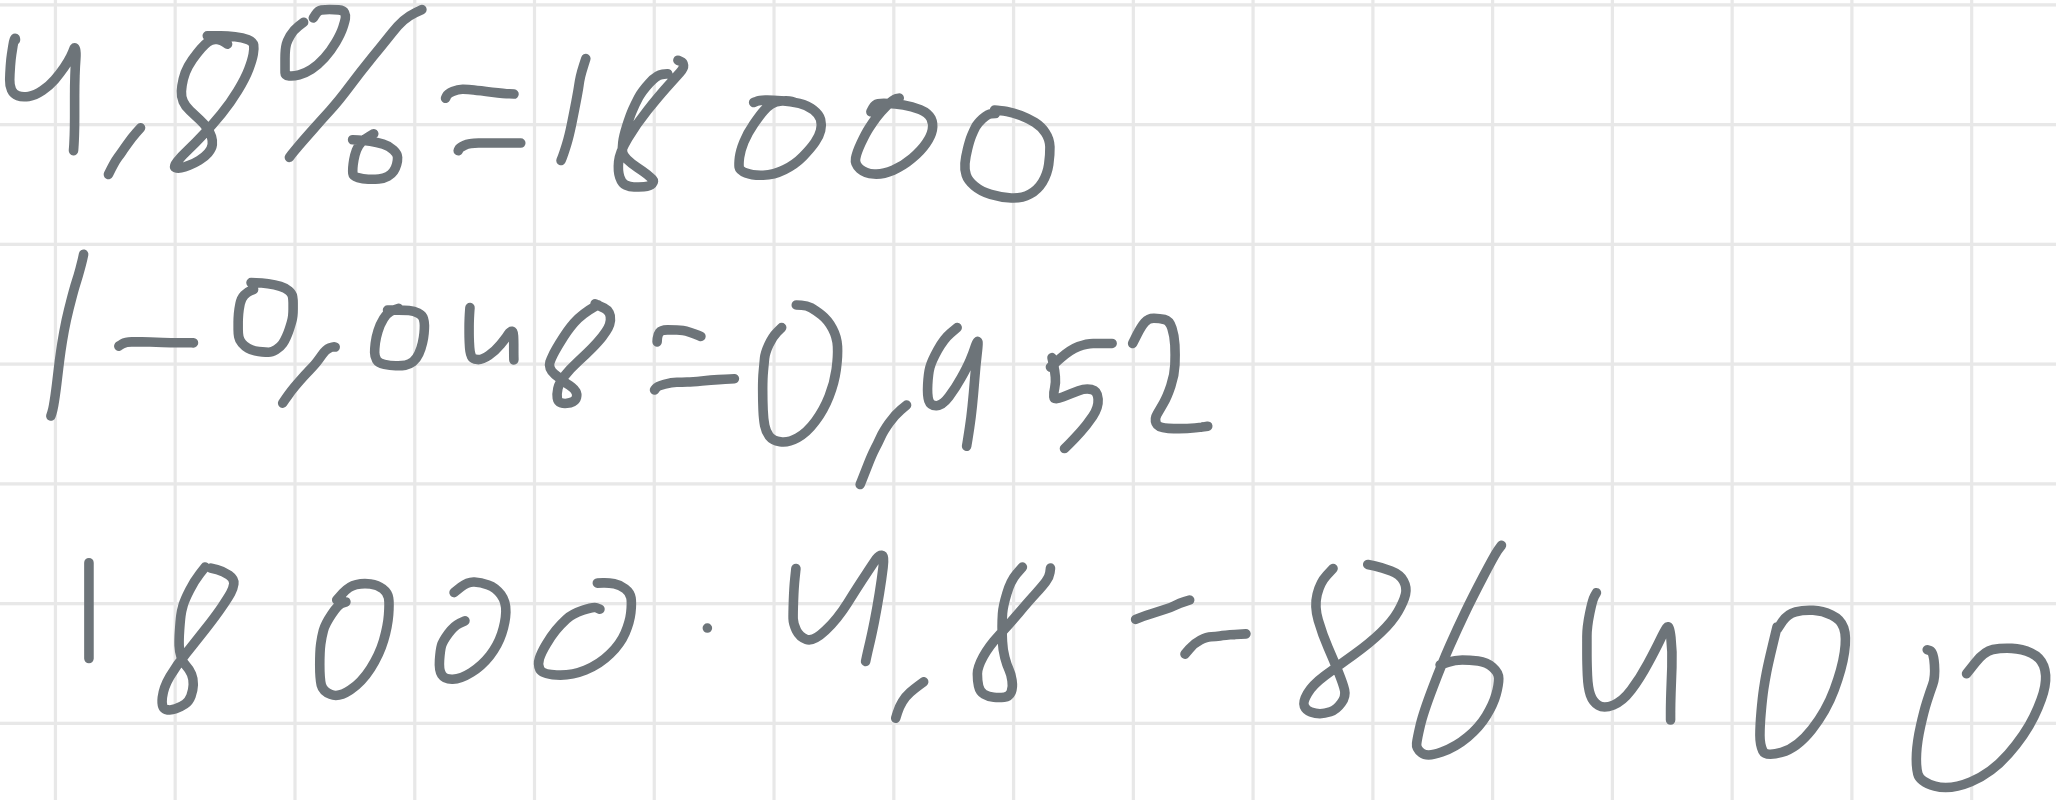 4,8%=18000
1-0,048=0,952
18000·4,8=86400